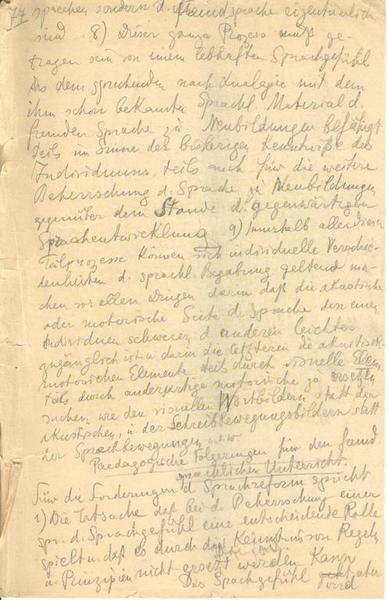 77
sprachen sondern d. Fremdsprache eigentümlich
sind. 8) Dieser ganze Prozess muß ge-
tragen sein von einem lebhaften Sprachgefühl
das dem Sprechenden nach Analogie mit dem
ihm schon bekannten sprachl. Material d.
fremden Sprache zu Neubildungen befähigt
teils im Sinne der bisherigen Kenntnisse des
Individuums, teils auch für die weitere
Beherrschung d. Sprache, zu Neubildungen
gegenüber dem Stande d. gegenwärtigen
Sprachentwicklung 9) Innerhalb aller dieser
Teilprozesse können sich individuelle Verschie-
denheiten d. sprachl. Begabung geltend ma-
chen vor allen Dingen darin daß die akustische
oder motorische Seite d. Sprache den einen
Individuen schwerer d. anderen leichter
zugänglich ist u. darin die letzteren die akustisch
motorischen Elemente teils durch visuelle Elem.
teils durch andersartige motorische zu ersetzen
suchen, wie den visuellen Wortbildern statt der
akustischen, u. der Schreibbewegungsbildern statt
der Sprechbewegungen u.s.w.
Paedagogische Folgerungen für den fremd
sprachlichen Unterricht.
Für die Forderungen d. Sprachreform spricht
1) Die Tatsache daß bei d. Beherrschung einer
spr. d. Sprachgefühl eine entscheidende Rolle
spielt u. daß es durch die Kenntnis von Regeln
u. Prinzipien nicht ersetzt werden kann
Das Sprachgefühl
wird